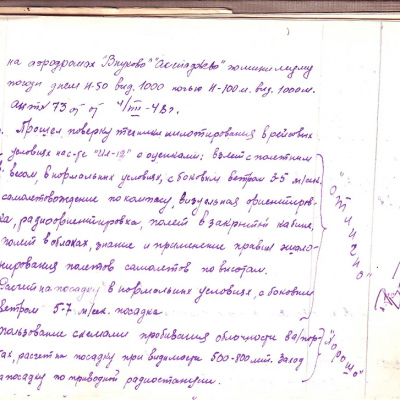 на аэродромах "Внуково" "Астафьево" по минимуму
погоды днем Н-50 вид. 1000 ночью Н-100 м. вид. 1000 м.
73 от 4/III-48 г.
Прошел поверку техники пилотирования в рейсовых
условиях на с-те "Ил-12" с оценками: взлет с полетным
весом, в нормальных условиях, с боковым ветром 3-5 м/сек.
самолетовождение по компасу, визуальная ориентиров-
ка, радиоориентировка, полет в закрытой кабине,
полет в облаках, знание и применение правил эшело-
нирования полетов самолетов по высотам.
"отлично"
Расчет на посадку в нормальных условиях, с боковым
ветром 5-7 м/сек. посадка.
пользование схемами пробивания облачности в а/пор-
тах, расчет на посадку при видимости 500-800 мт. Заход
на посадку по приводной радиостанции.
"хорошо"